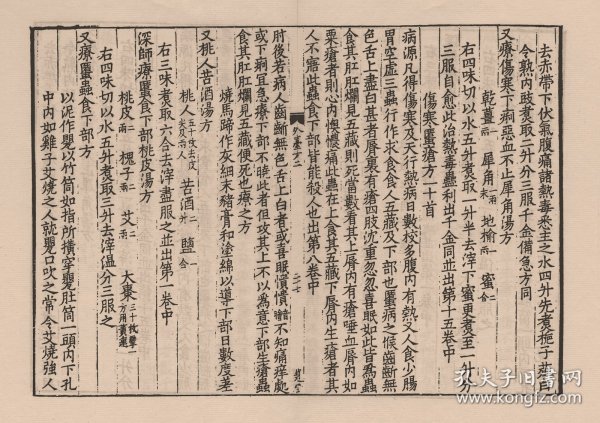 去赤帶下伏氣腹痛諸熱毒悉主之水四升先煮梔子薤白
令熟內豉煮取二升分三服千金備急方同
又療傷寒下痢惡血不止犀角湯方
乾薑二兩 犀角一兩末 地榆一兩 蜜二合
右四味切以水五升煮取一升半去滓下蜜更煮至一升分
三服自愈此治熱毒蠱利出千金同並出第十五卷中
傷寒䘌瘡方一十首
病源凡得傷寒及天行熱病日數校多腹內有熱又人食少腸
胃空虛三蟲行作求食食人五藏及下部也䘌病之候齒斷無
色舌上盡白甚者脣裏有瘡四肢沈重忽忽喜眠如此皆為蟲
食其肛肛爛見五藏則死當數看其上脣內有瘡唾血脣內如
粟瘡者則心內懊憹痛此蟲在上食其五藏下脣內生瘡者其
人不寤此蟲食下部皆能殺人也出第八卷中
外臺方二 二十七
肘後若病人齒斷無色舌上白者或喜眠憒憒不知痛痒處
或下痢宜急療下部不曉此者但攻其上不以為意下部生瘡蟲
食其肛肛爛見五藏便死也療之方
燒馬蹄作灰細末豬膏和塗綿以導下部日數度差
又桃人苦酒湯方
桃人五十枚去皮尖及兩人 苦酒二升 鹽一合
右三味煮取六合去滓盡服之並出第一卷中
深師療䘌食下部桃皮湯方
桃皮 槐子 艾 大棗三十枚擘一方用黃連
右四味切以水五升煮取三升去滓溫分三服之
又療䘌蟲食下部方
以泥作甖以竹筒如指所橫穿甖肚筒一頭內下孔
中內如雞子艾燒之人就甖口吹之常令艾燒強人
孔夫子旧书网
www.kongfz.com